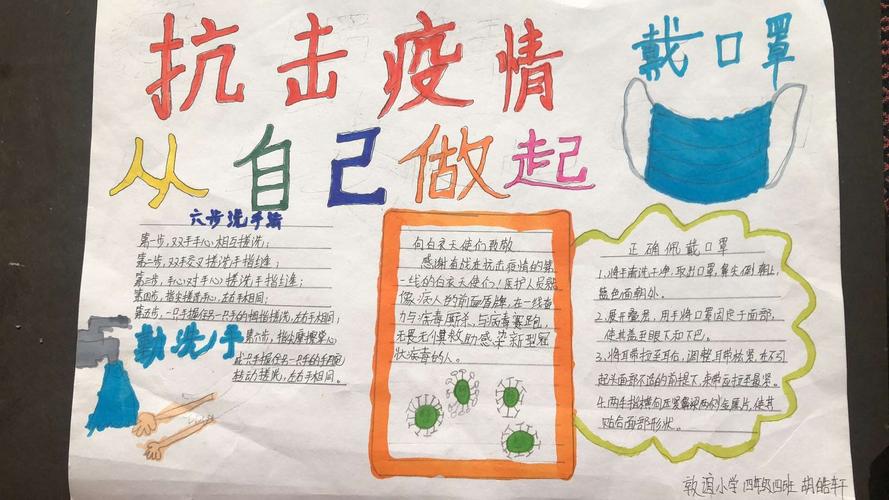 抗击疫情
戴口罩
从自己做起
六步洗手法
第一步,双手手心相互搓洗;
第一步,双手交叉搓洗手指缝;
第三步,手心对手心搓洗手指缝;
第四步,指尖搓洗手心,左右手相同;
第五步,一只手握住另一只手的拇指搓洗,左右手相同;
第六步,指尖摩擦掌心
或一只手握住另一只手的手腕
转动搓洗,左右手相同。
勤洗小手
向白衣天使们致敬
感谢奋战在抗击疫情的第
一线的白衣天使们!医护人员就
像病人的前面盾牌,在一线奋
力与病毒厮杀、与病毒赛跑,
无畏无惧救助感染新型冠
状病毒的人。
正确佩戴口罩
1、将手清洗干净,取出口罩,鼻尖侧朝上,
蓝色面朝外。
2、展开叠层,用手将口罩固定于面部,
使其盖至眼下和下巴。
3、将耳带拉至耳后,调整耳带松紧,在不引
起头面部不适的前提下,束带应拉至最紧。
4、两手指横向压紧鼻梁两侧金属片,使其
贴合面部形状。
敦谊小学 四年级四班 胡皓轩